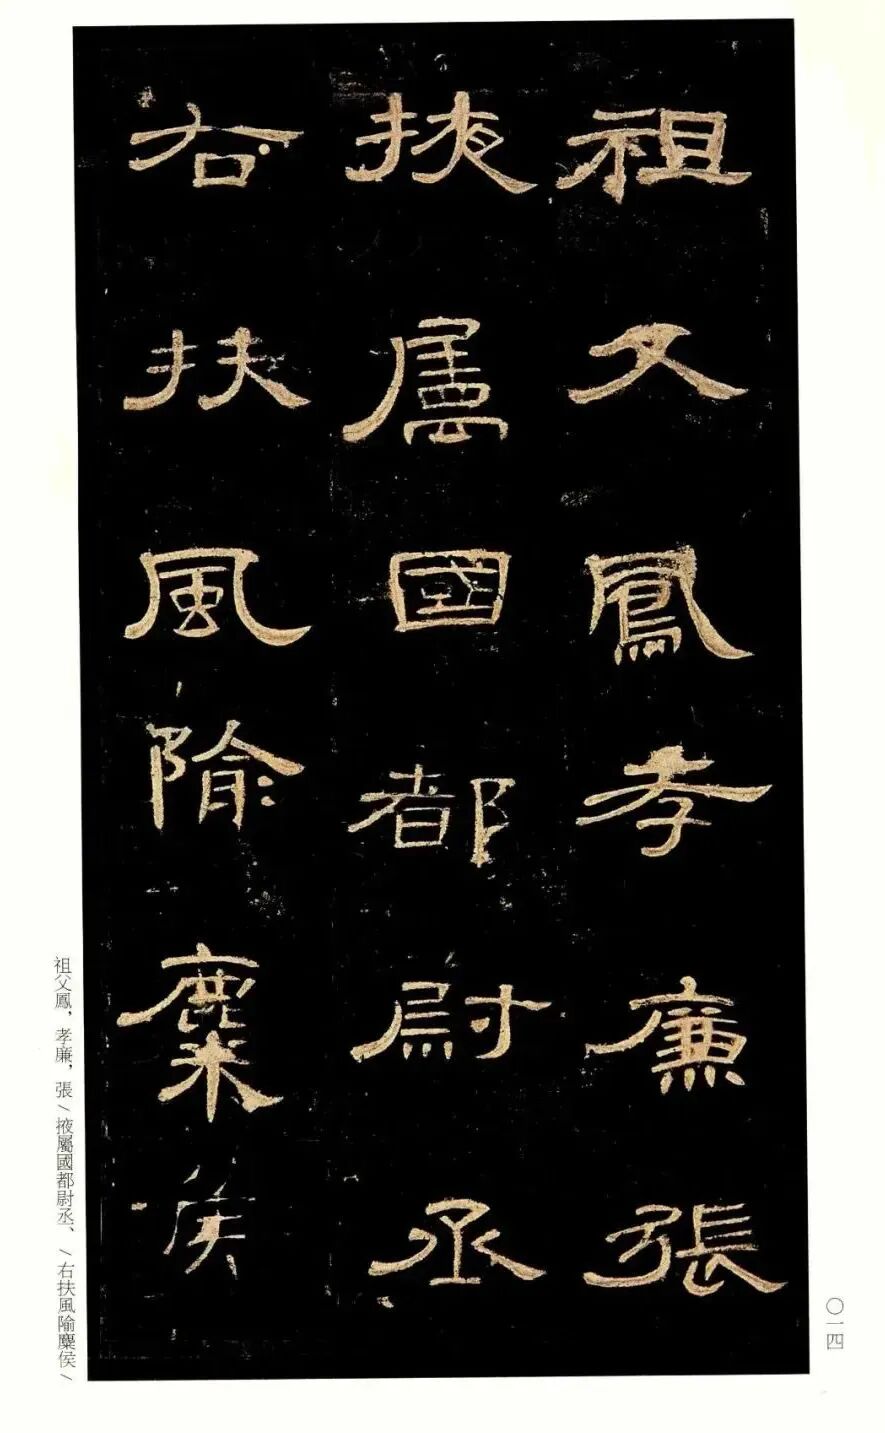 祖父鳳孝廉張
掖屬國都尉丞
右扶風隃麋侯
祖父鳳，孝廉，張/掖屬國都尉丞、/右扶風隃麋侯/
〇一四